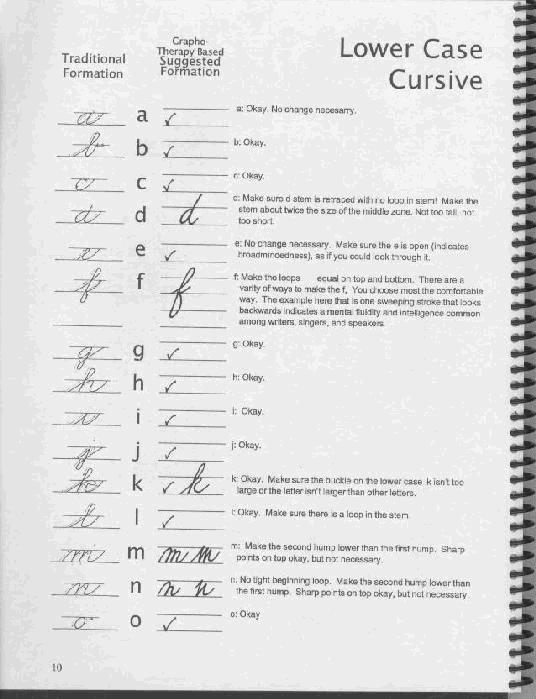 Grapho-
Therapy Based
Suggested
Formation
Traditional
Formation
Lower Case
Cursive
a a: Okay. No change necesarry.
b b: Okay.
c c: Okay.
d d c: Make sure d stem is retraced with no loop in stem! Make the
stem about twice the size of the middle zone. Not too tall, not
too short.
e e: No change necessary. Make sure the e is open (indicates
broadmindedness), as if you could look through it.
f f f: Make the loops equal on top and bottom. There are a
varity of ways to make the f, You choose most the comfortable
way. The example here that is one sweeping stroke that looks
backwards indicates a mental fluidity and intelligence common
among writers, singers, and speakers.
g g: Okay.
h h: Okay.
i i: Okay.
j j: Okay.
k k k: Okay. Make sure the buckle on the lower case k isn't too
large or the letter isn't larger than other letters.
l l: Okay. Make sure there is a loop in the stem.
m m m m: Make the second hump lower than the first hump. Sharp
points on top okay, but not necessary.
n n n n: No tight beginning loop. Make the second hump lower than
the first hump. Sharp points on top okay, but not necessary
o o: Okay
10